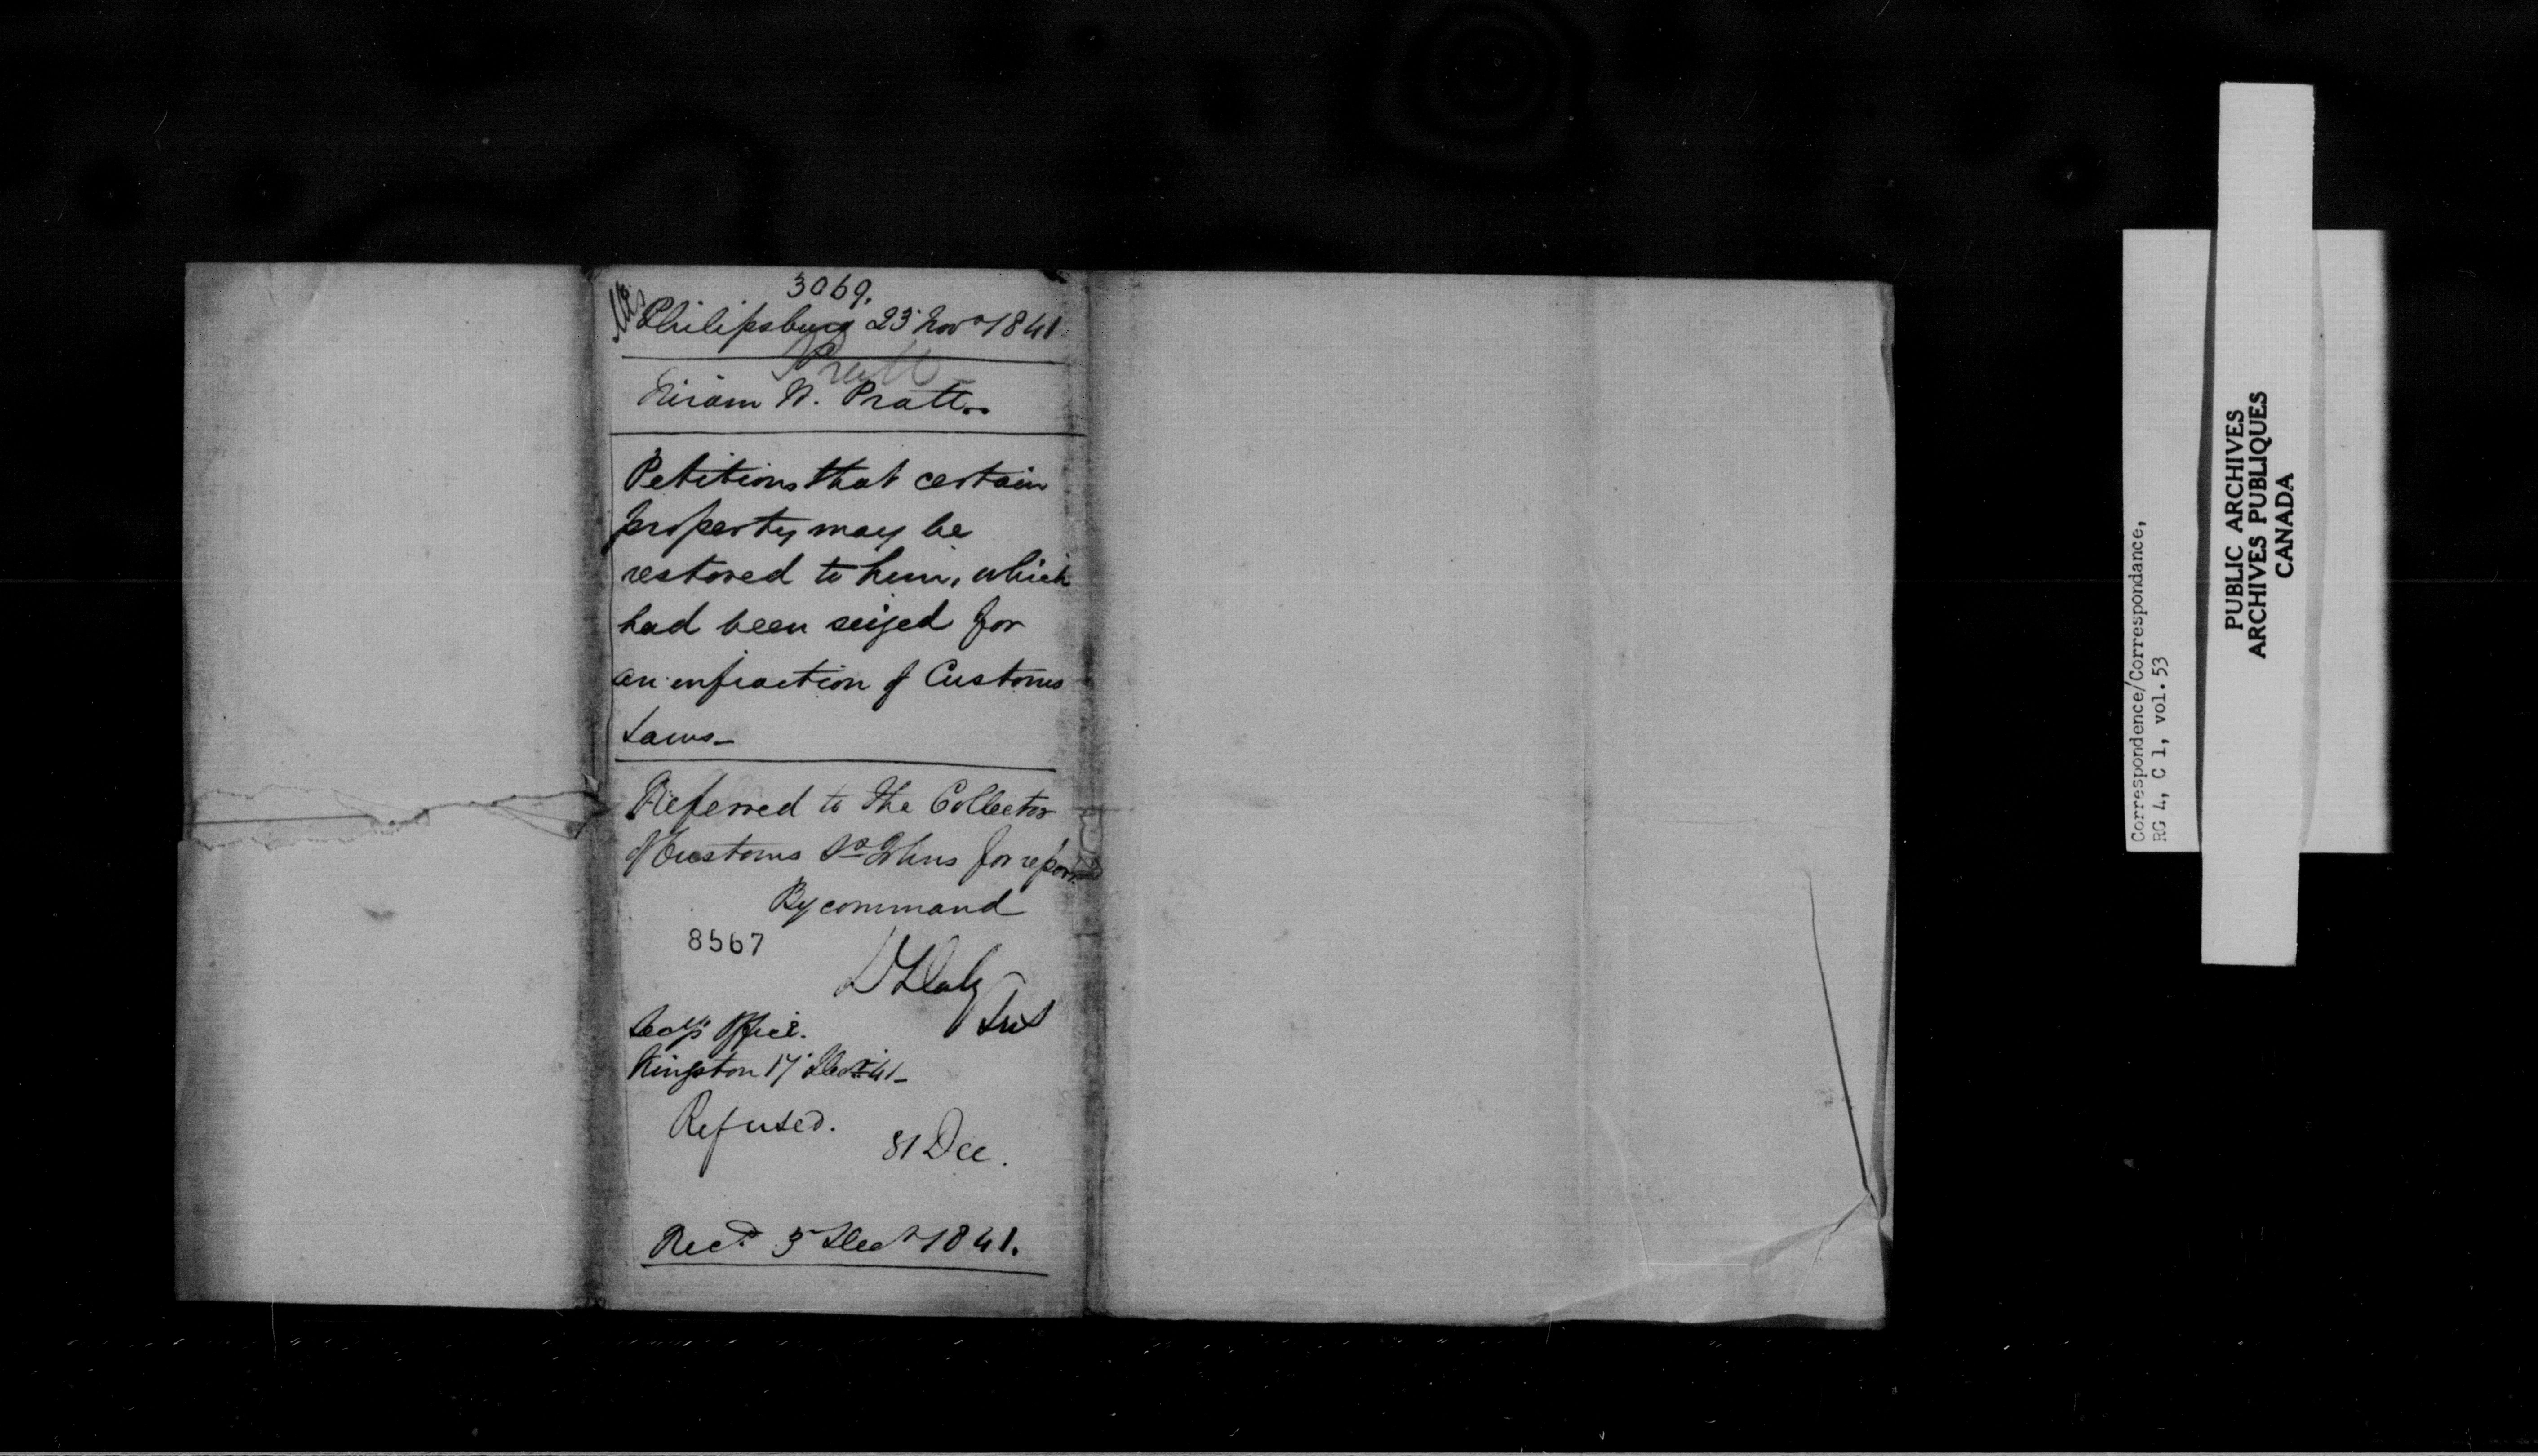 3069.
Philipsburg 23 Novr 1841
Pratt
Hiram W. Pratt.
Petitions that certain
property may be
restored to him, which
had been seized for
an infraction of Customs
Laws_
Referred to the Collector
of Customs St Johns for report
By command
8567
D Daly
Secy's Office.
Kingston 17 Decr 41_
Refused.
31 Dec.
Recd. 3 Decr 1841.
Correspondence/Correspondance,
RG 4, C 1, vol. 53
PUBLIC ARCHIVES
ARCHIVES PUBLIQUES
CANADA